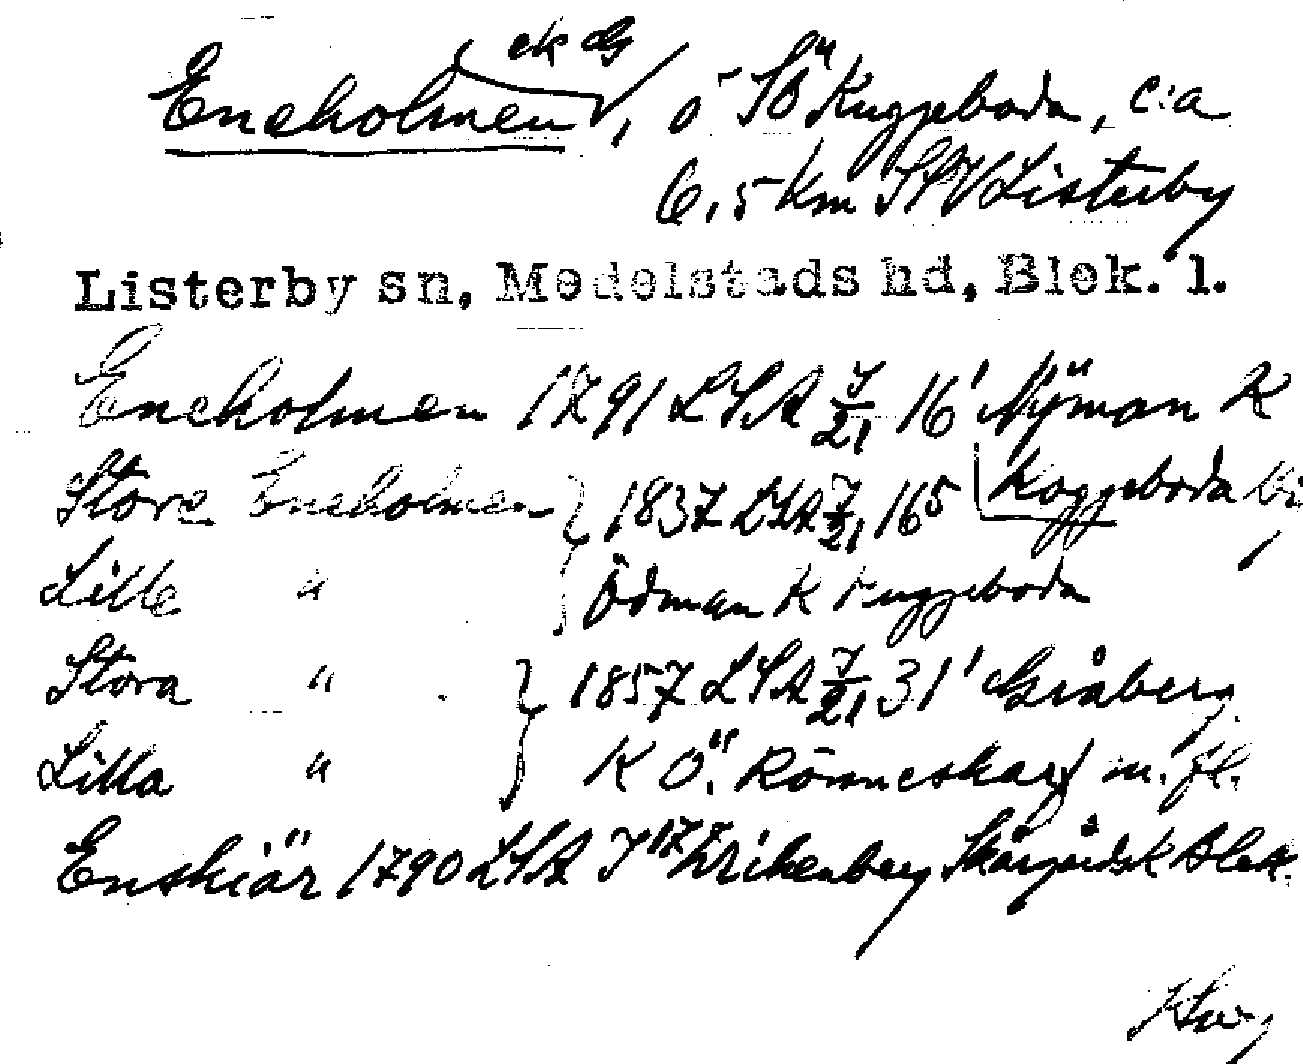 ek
Eneholmen, ö SÖ Kuggeboda, c:a
6,5 km SSV Listerby
Listerby sn, Medelstads hd, Blek. l.
Eneholmen 1791 LSA 7/21, 16¹ Nyman K
Store Eneholmen } 1837 LSA 7/21, 16⁵ Koggeboda
Lille " Ödman K Kuggeboda
Stora " } 1857 LSA 7/21, 31¹ Gråberg
Lilla " K Ö. Rönneskär m. fl.
Enskiär 1790 LSA Wikenberg Skärgårdsk Blek.